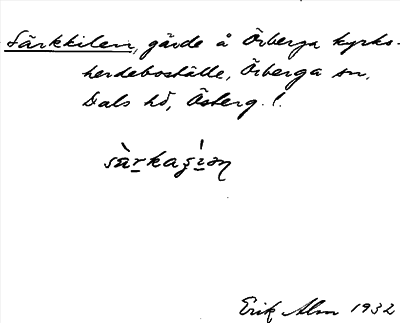 Särkkilen, gärde å Örberga kyrko-
herdeboställe, Örberga sn,
Dals hd, Österg.l.
Erik Alm 1932